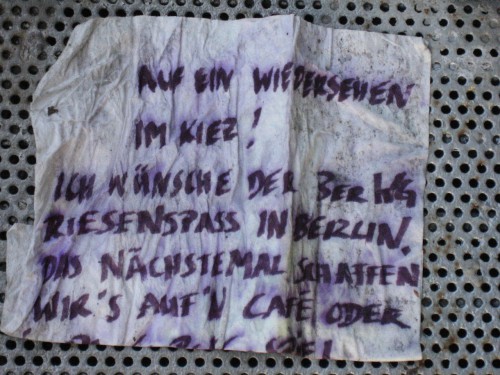 AUF EIN WIEDERSEHEN
IM KIEZ!
ICH WÜNSCHE DER 3ER WG
RIESENSPASS IN BERLIN.
DAS NÄCHSTEMAL SCHAFFEN
WIR'S AUF'N CAFÉ ODER